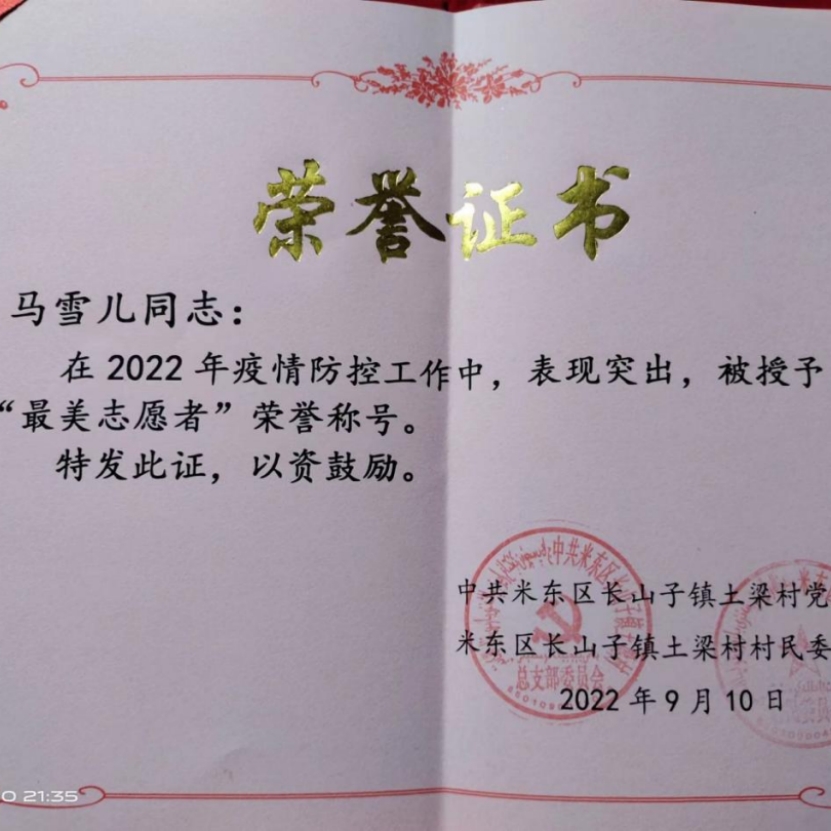 荣誉证书
马雪儿同志：
在2022年疫情防控工作中，表现突出，被授予
“最美志愿者”荣誉称号。
特发此证，以资鼓励。
中共米东区长山子镇土梁村党
米东区长山子镇土梁村村民委
2022年9月10日
总支部委员会
0 21:35